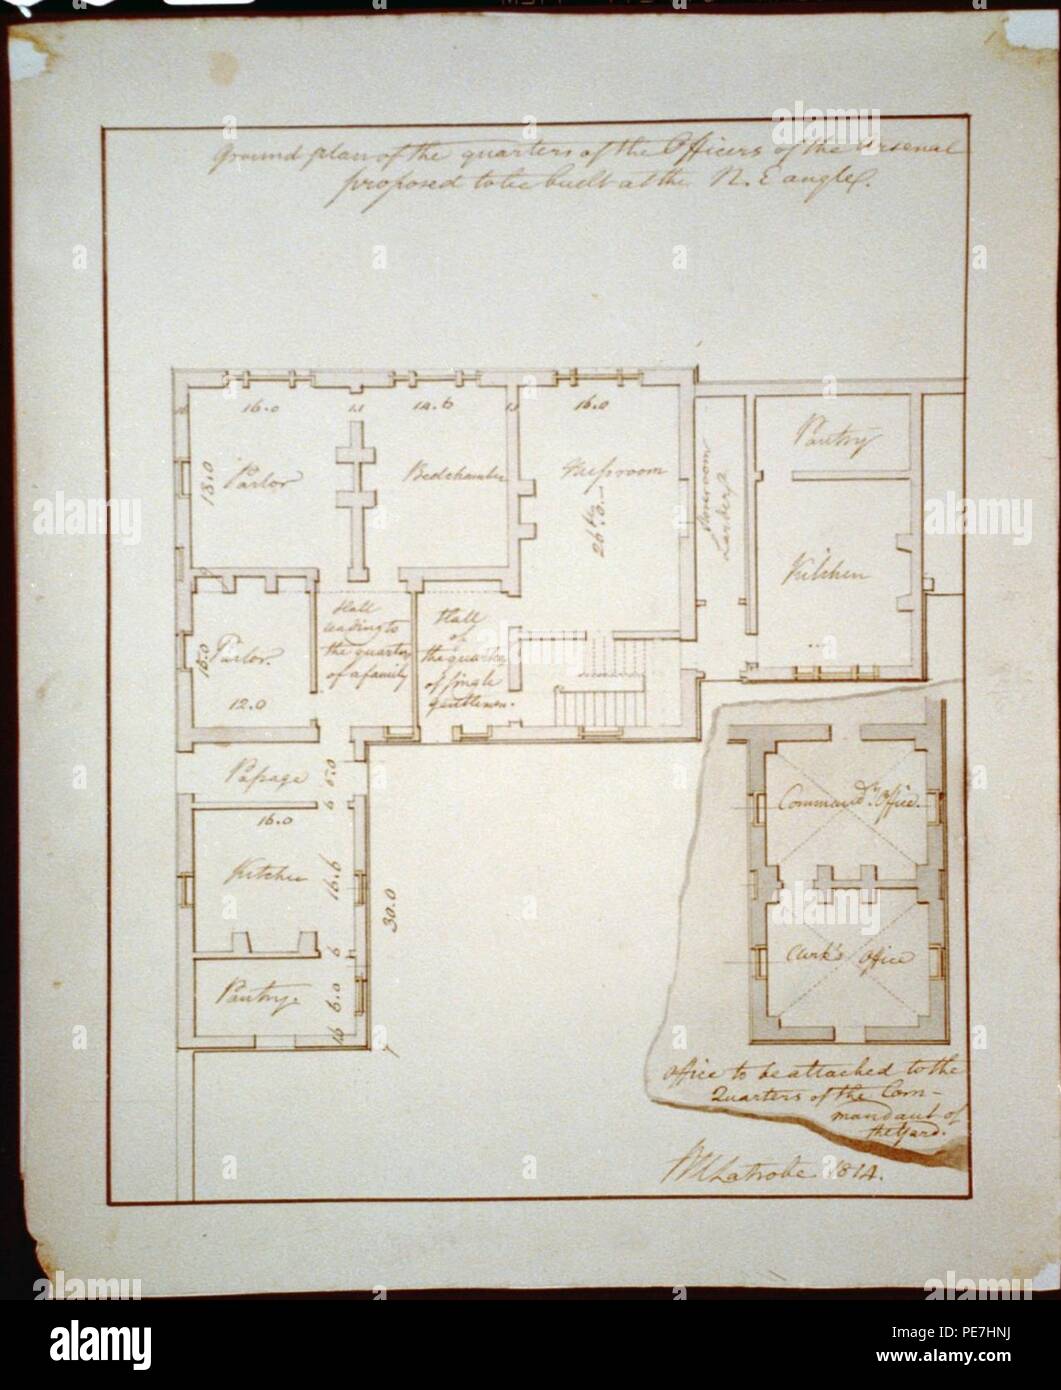 Ground plan of the quarters of the Officers of the Arsenal
proposed to be built at the N. E angle.
16.0
14.6
16.0
Parlor
18.0
Bedchamber
Messroom
26.0
Storeroom
Larder
Pantry
Kitchen
Parlor.
12.0
Hall
leading to
the quarters
of a family
Hall
of
the quarters
of single
gentlemen.
Passage
16.0
Kitchen
16.6
30.0
Pantry
6.0
Commandts. Office.
Clerk's Office
Office to be attached to the
Quarters of the Com-
mandant of
the Yard.
BHLatrobe 1814.
alamy
PE7HNJ
www.alamy.com